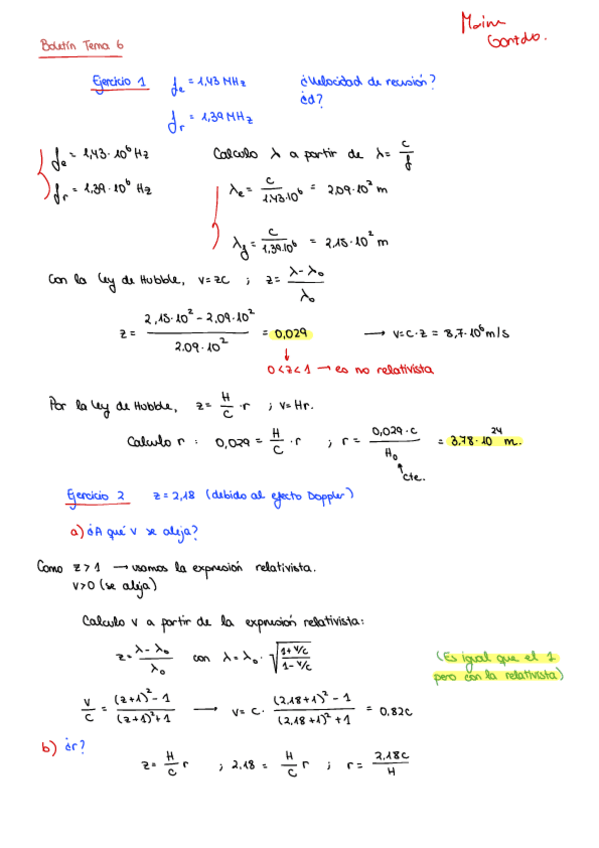 Boletín Tema 6
Ejercicio 1 fe = 1,43 MHz ¿Velocidad de recesión?
¿d?
fr = 1,39 MHz
fe = 1,43·10^6 Hz Calculo λ a partir de λ = c/f
fr = 1,39·10^6 Hz λe = c/1.43·10^6 = 2,09·10^2 m
λf = c/1,39·10^6 = 2,15·10^2 m
Con la Ley de Hubble, v=zc ; z = λ-λ₀/λ₀
z = 2,15·10^2 - 2,09·10^2/2.09·10^2 = 0,029 → v=c·z = 8,7·10^6 m/s
0<z<1 → es no relativista
Por la Ley de Hubble, z = H/c · r ; v=Hr.
Calculo r : 0,029 = H/c · r ; r = 0,029·c/H₀ = 3.78·10^24 m.
cte.
Ejercicio 2 z=2,18 (debido al efecto Doppler)
a) ¿A qué v se aleja?
Como z>1 → usamos la expresión relativista.
v>0 (se aleja)
Calculo v a partir de la expresión relativista:
z = λ-λ₀/λ₀ con λ=λ₀·√(1+v/c/1-v/c) (Es igual que el 1
pero con la relativista)
v/c = (z+1)²-1/(z+1)²+1 → v= c· (2,18+1)²-1/(2,18+1)²+1 = 0.82c
b) ¿r?
z = H/c r ; 2,18 = H/c r ; r = 2,18c/H